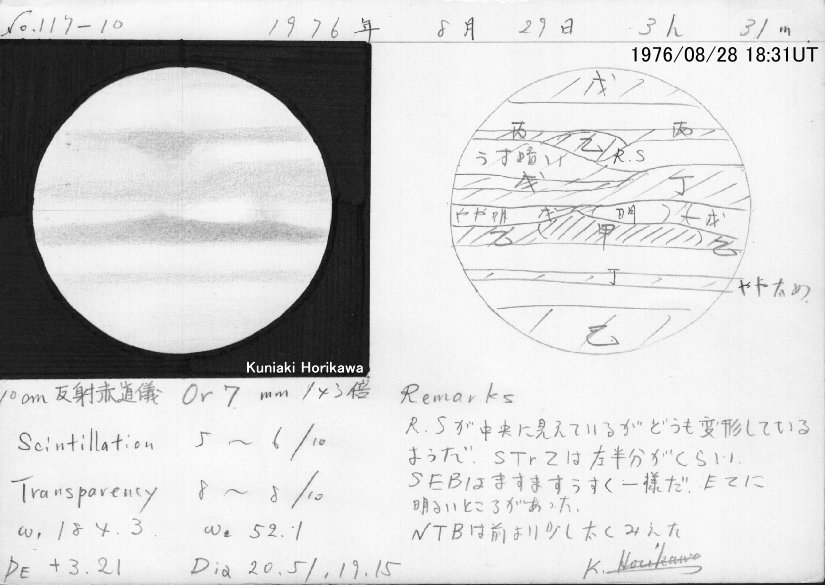 No.117-10 1976年 8月 29日 3h 31m
1976/08/28 18:31UT
戊
丙 丙
乙 R.S
うす暗い
戊 丁
やや明 戊 明 戊
乙 甲 乙
丁
ややななめ
己
Kuniaki Horikawa
10cm反射赤道儀 Or 7mm 143倍
Scintillation 5~6/10
Transparency 8~8/10
ω₁ 184.3 ω₂ 52.1
DE +3.21 Dia 20.51, 19.15
Remarks
R.Sが中央に見えているがどうも変形している
ようだ. STrZは左半分がくらい.
SEBはますますうすく一様だ. EZに
明るいところがあった.
NTBは前より少し太くみえた
K. Horikawa